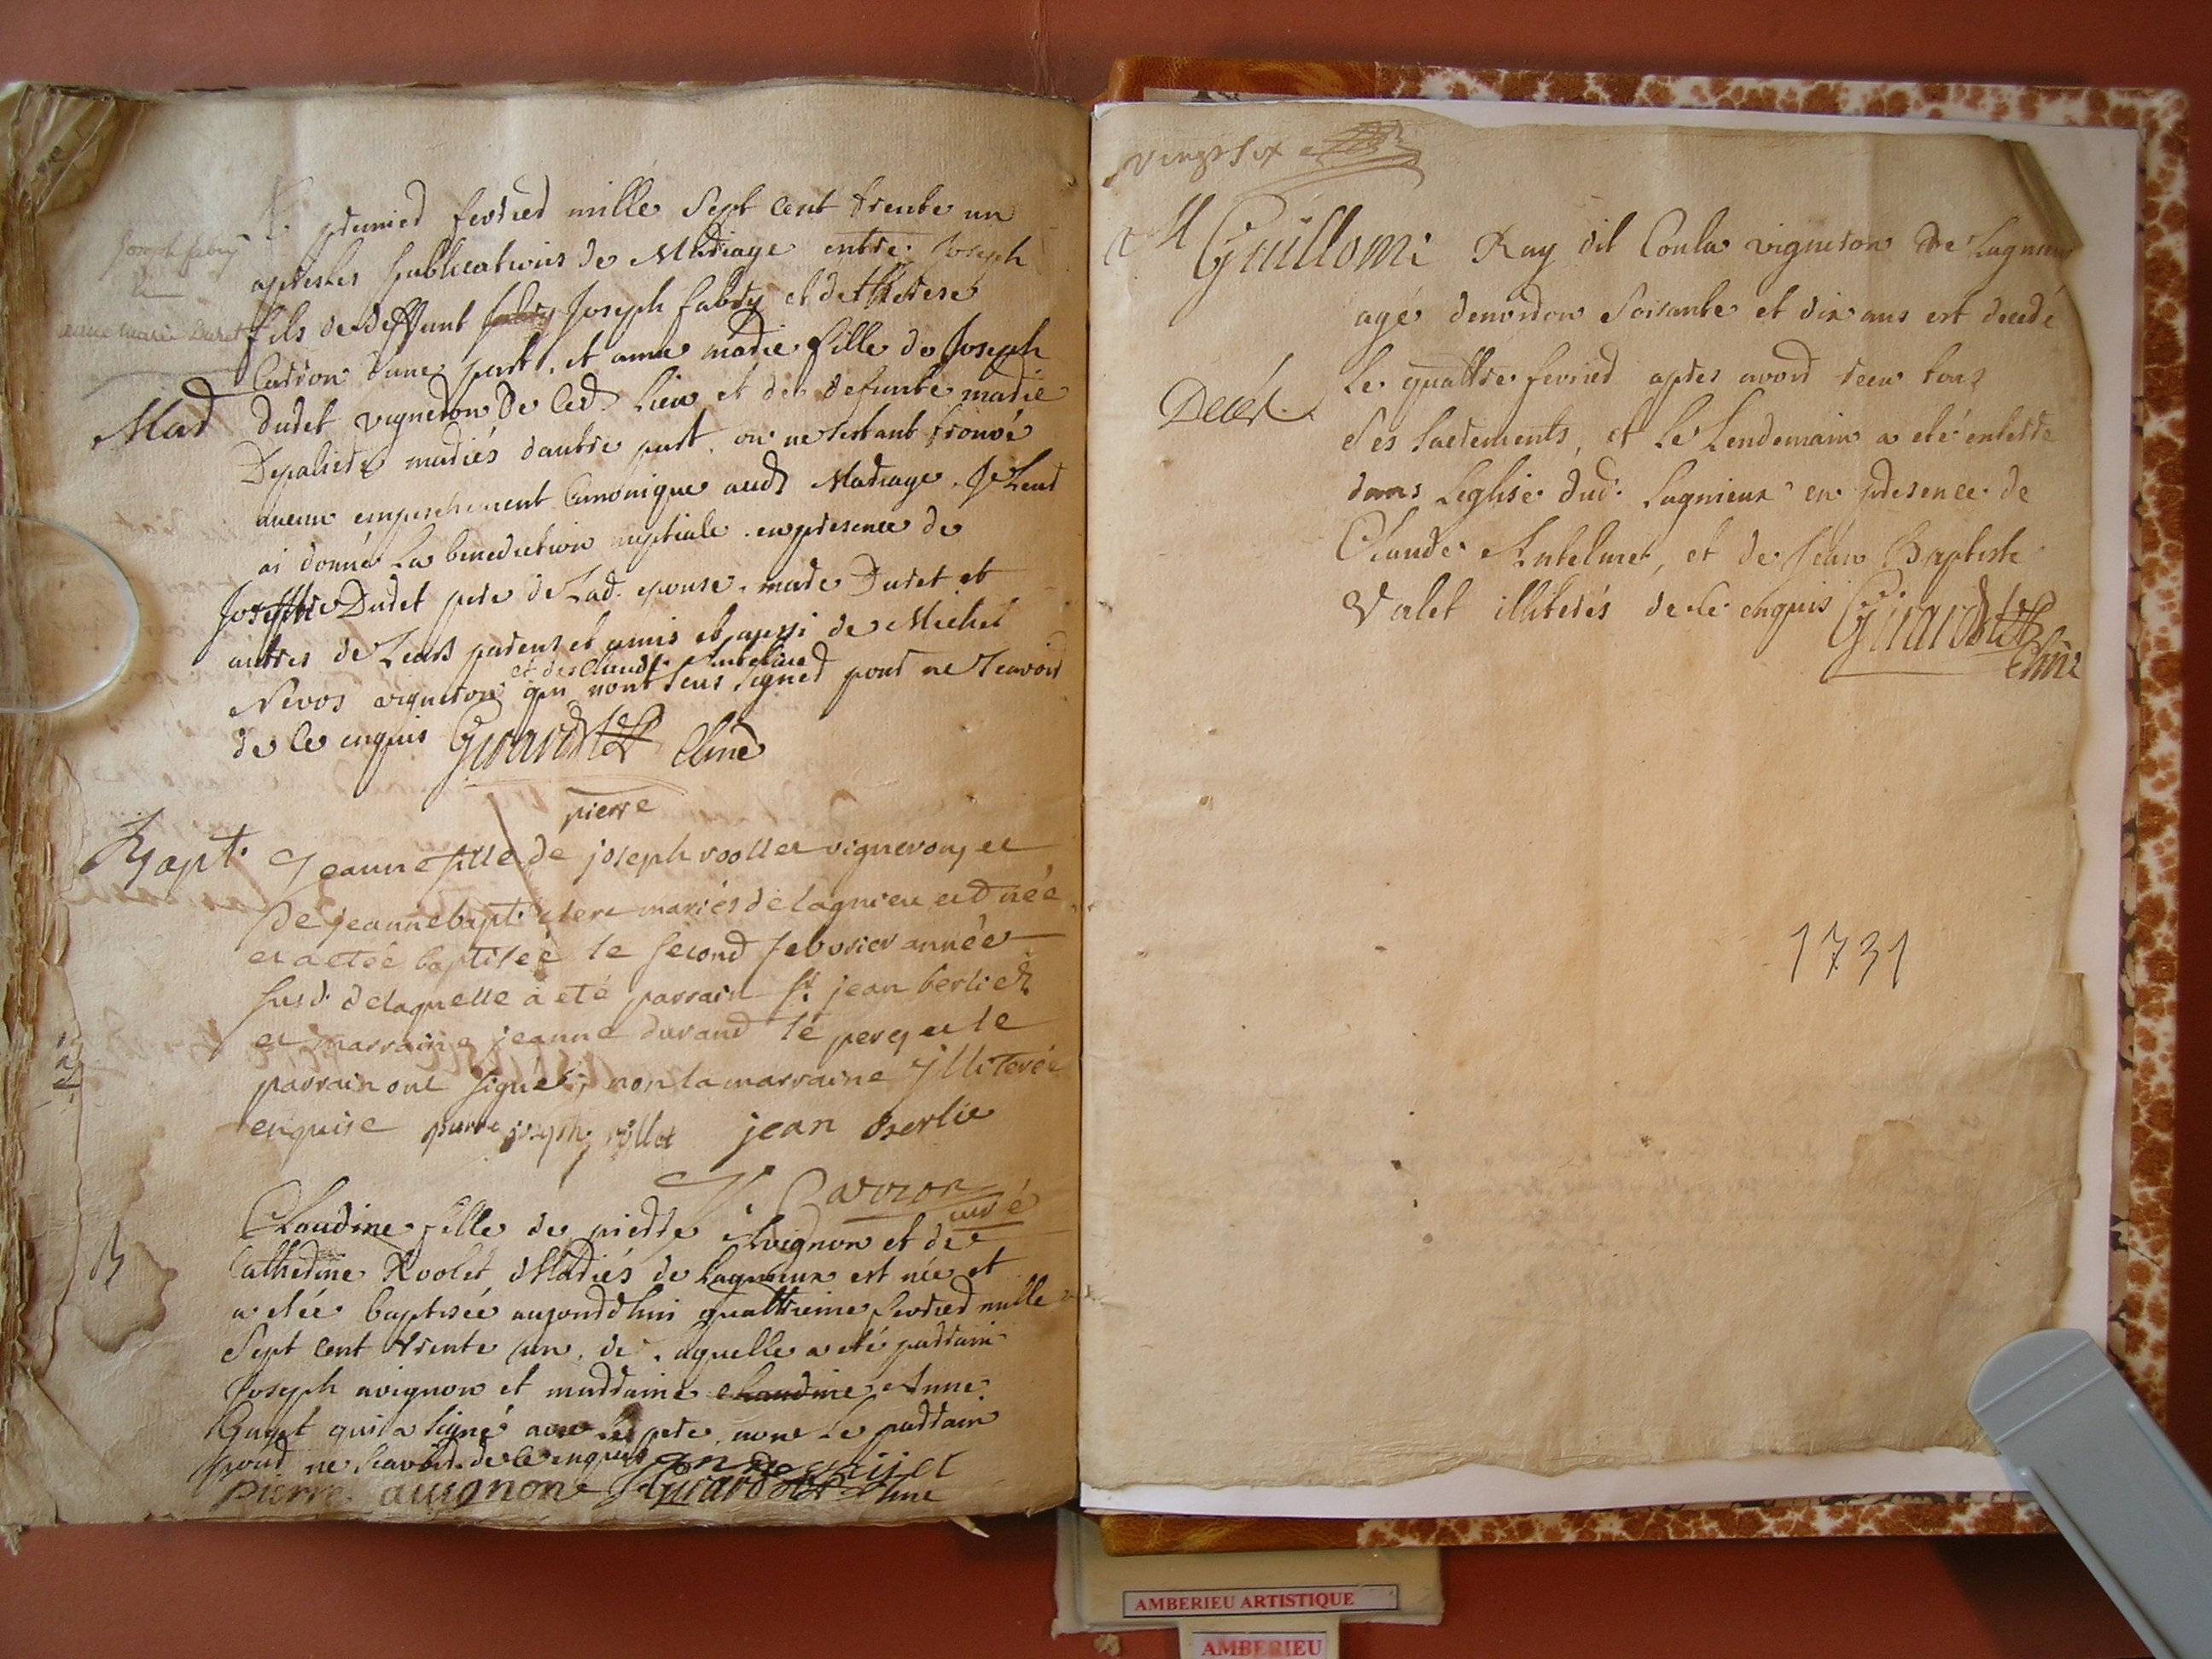 Joseph fabry
&
anne marie Duret
Mar
premier fevrier mille Sept cent trente un
apres les publications de Mariage entre Joseph
fils de deffunt fabry Joseph fabry et de therese
Carron dune part, et anne marie fille de Joseph
duret vigneron De Ced. Lieu et de defunte marie
mariés dautre part. on ne sestant trouvé
aucun empeschement Canonique aud. Mariage. Je Leur
ai donné La benediction nuptiale. en presence de
Joseph Duret pere de Lad. epouse. marc Duret et
autres de Leurs parens et amis et aussi de Michel
et de Claude Antelme
Nevos vigneron qui nont sceu signer pour ne scavoir
de Ce enquis Girard Ptre
pierre
Bapt.
Jeanne fille de joseph roollet vigneron, et
de jeanne bapt. clerc mariés de lagnieu est née
et a etée baptisée le second febvrier année
susd. de laquelle a eté parrain Sr. jean berlie
et marraine jeanne durand le pere, et le
parrain ont signé, non la marraine jlliterée
enquise pierre joseph rollet jean berlie
Carron
curé
B
Claudine fille de pierre Avignon et de
Catherine Roolet Mariés de Lagnieux est née et
a etée baptisée aujourdhui quattrieme fevrier mille
Sept cent trente un. de laquelle a eté parrain
Joseph avignon et marraine claudine Anne
Guyet qui a signé avec le pere, non le parrain
pour ne scavoir de Ce enquis anne guijet
pierre auignon Girard Ptre
vingt six
Guillome Ray dit Coula vigneron De Lagnieu
agé denviron soisante et dix ans est decedé
Deces.
Le quattre fevrier apres avoir receu tous
Ses Sacrements, et Le Lendemain a eté enterré
dans Leglise dud. Lagnieux en presence de
Claude Antelmet, et de Jean Baptiste
Valet illiterés de Ce enquis Girard Ptre
1731
AMBERIEU ARTISTIQUE
AMBERIEU